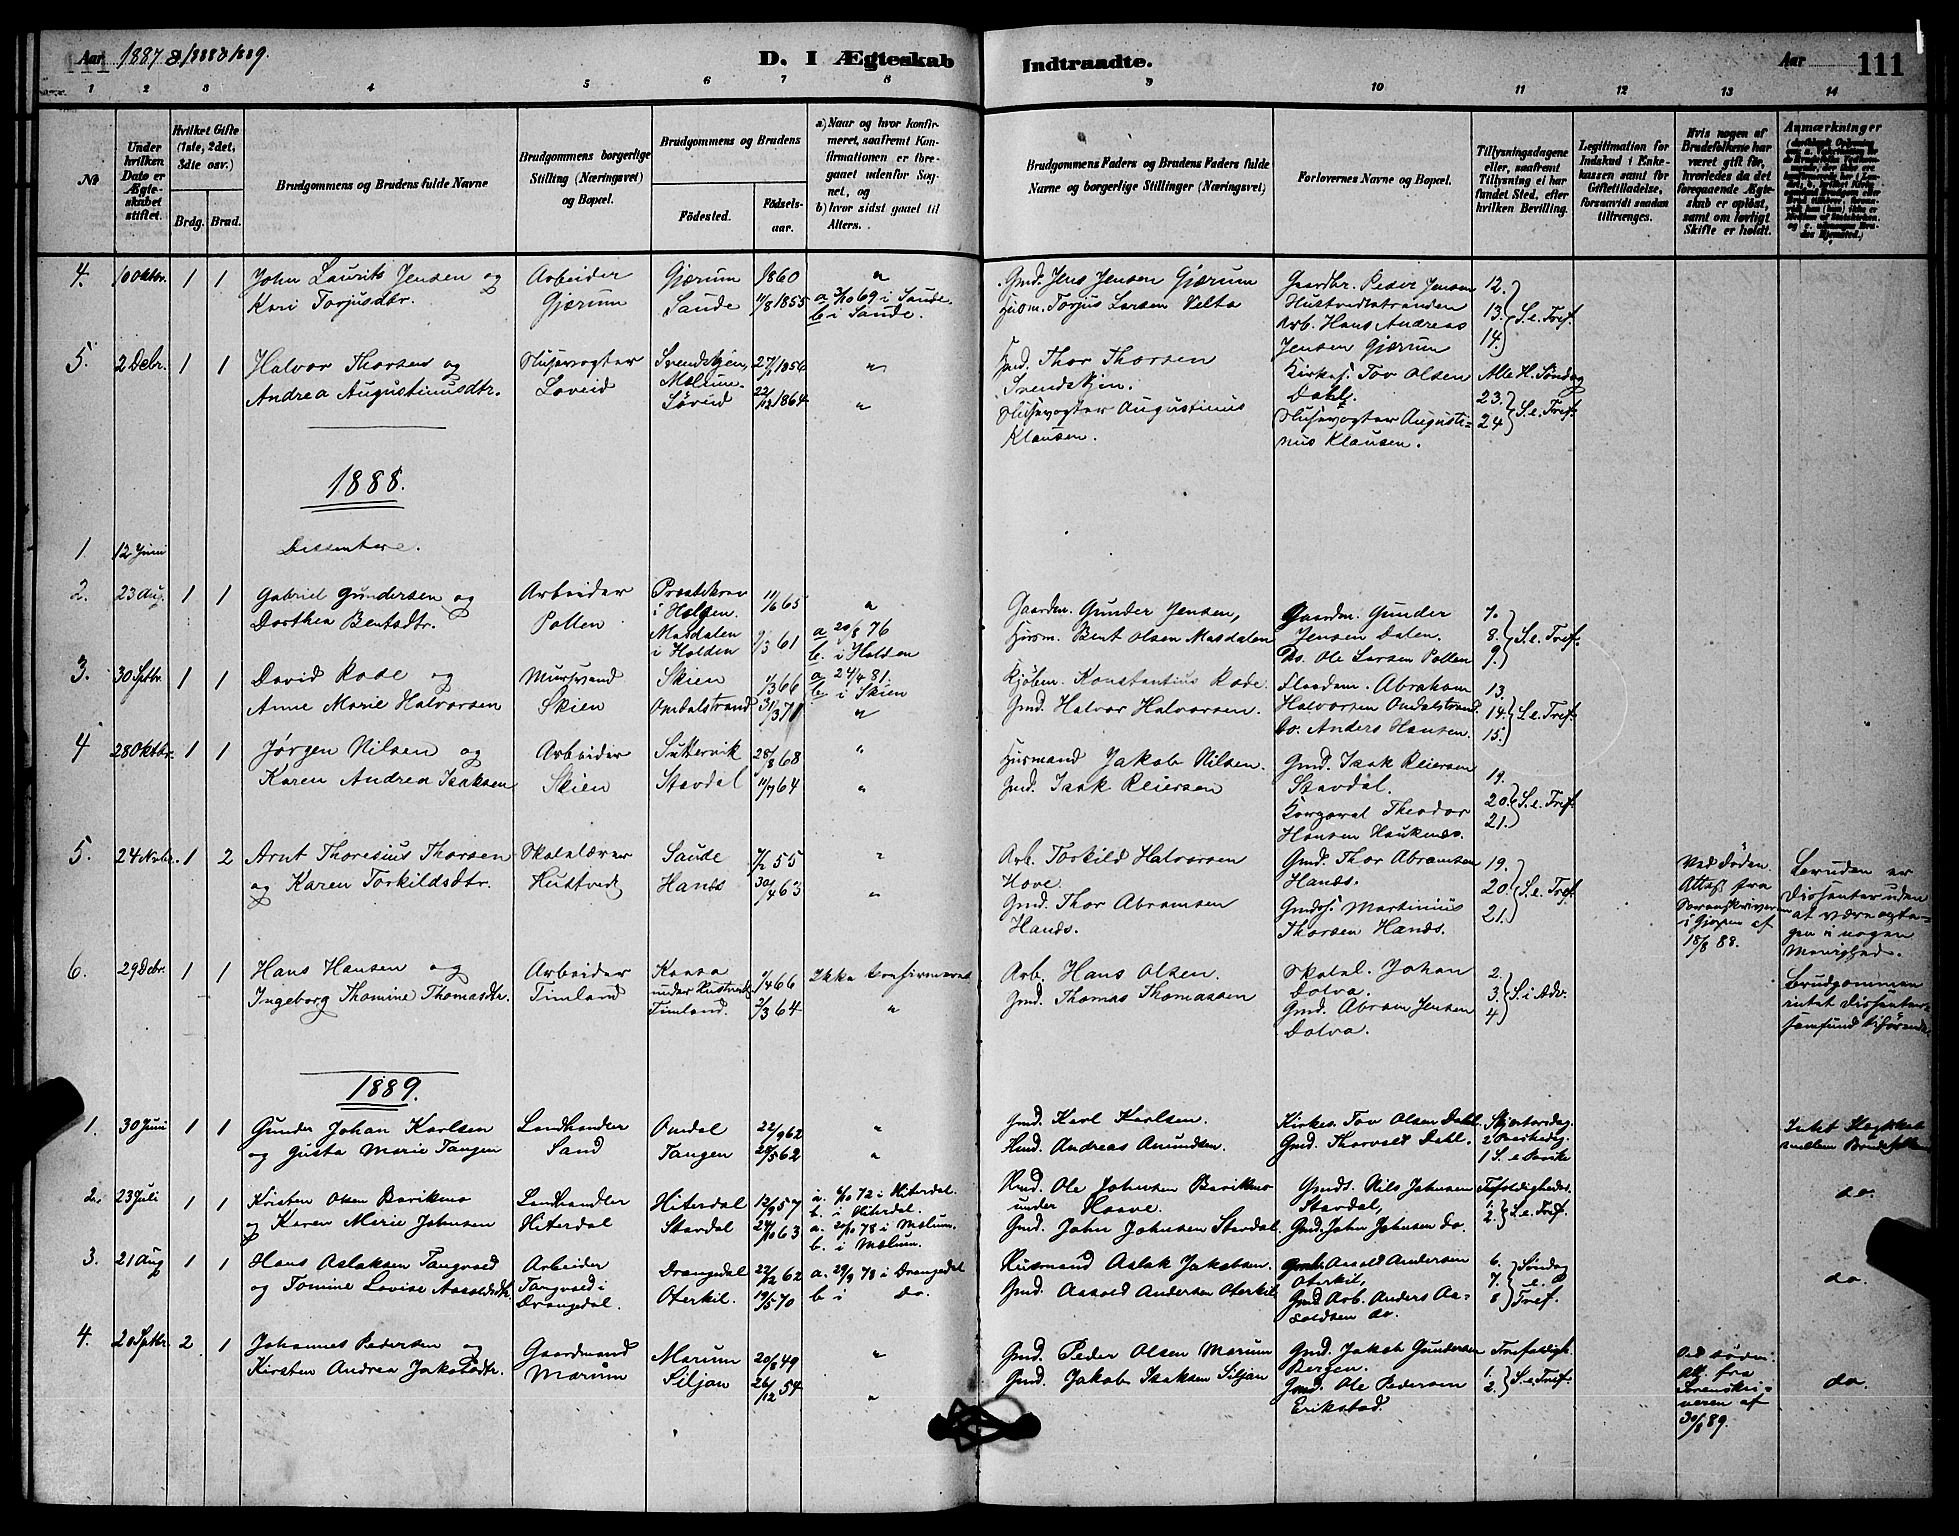 Aar 1887
D. I Ægteskab Indtraadte.
Aar
111
1 2 3 4 5 6 7 8 9 10 11 12 13 14
№
Under hvilken Dato er Ægteskabet stiftet.
Hvilket Gifte (1ste, 2det, 3dte osv.)
Brdg. Brud.
Brudgommens og Brudens fulde Navne
Brudgommens borgerlige Stilling (Næringsvei) og Bopæl.
Brudgommens og Brudens
Fødested.
Fødselsaar.
a) Naar og hvor konfirmeret, saafremt Konfirmationen er foregaaet udenfor Sognet, og
b) hvor sidst gaaet til Alters.
Brudgommens Faders og Brudens Faders fulde Navne og borgerlige Stillinger (Næringsvei)
Forlovernes Navne og Bopæl.
Tillysningsdagene eller, saafremt Tillysning ei har fundet Sted, efter hvilken Bevilling.
Legitimation for Indskud i Enkekassen samt for Giftetilladelse, forsaavidt saadan tiltrænges.
Hvis nogen af Brudefolkene har været gift før, hvorledes da det foregaaende Ægteskab er opløst, samt om lovligt Skifte er holdt.
Anmærkninger
4. 1 1 John Laurits Jensen og Arbeider Gjærum 1860 "
Kari Torjusdtr. Gjærum Saude 11/8 1855 a. 3/10 69 i Saude. b i Saude.
Gmd. Jens Jensen Gjærum Gaardbr. Peder Jensen 12.
Husm. Torjus Larsen Velta Hustvedtstranden 13. S. e. Tref.
Arb. Hans Andreas 14.
Jensen Gjærum
5. 2 Debr. 1 1 Halvor Thorsen og Slusevogter 27/1 1856 "
Andrea Augustinusdtr. Loveid Løveid 22/12 1864 "
Gmd. Thor Thorsen Kirkes. Tov Olsen Alle H. Søndag
Dahl. 23.
Slusevogter Augustinus Slusevogter Augusti- 24 S. e. Tref.
Klausen. nus Klausen.
1888.
1. 12 Juni Dissentere.
2. 23 Aug. 1 1 Gabriel Gundersen og Arbeider i Holden. 11/6 65 "
Dorthea Bentsdtr. Pollen Masdalen i Holden 9/3 61 a 20/8 76 b. i Holden
Gaardm. Gunder Jensen, Gaardm. Gunder 7.
Husm. Bent Olsen Masdalen Jensen Dalen. 8. S. e. Tref.
Do. Ole Larsen Pollen 9.
3. 30 Septbr. 1 1 David Rode og Mursvend Skien 1/3 66 a 24/4 81. b. i Skien
Anne Marie Halvorsen Skien Omdalstrand 31/3 71 "
Kjøbm. Konstantius Rode. Abraham 13.
Gmd. Halvor Halvorsen. Halvorsen Omdalstrand. 14. S. e. Tref.
Do. Anders Hansen. 15.
4 28 Oktbr. 1 1 Jørgen Nilsen og Arbeider 28/8 68 "
Karen Andrea Isaksen Skien Stavdal 11/7 64 "
Husmand Jakob Nilsen. Gmd. Isak Reiersen 19.
Gmd. Isak Reiersen Stavdal. 20. S. e. Tref.
Theodor 21.
Hansen Haukenæs.
5. 24 Novbr. 1 2 Arnt Thoresius Thorsen Skolelærer Saude 7/2 55 "
og Karen Torkildsdtr. Hustvedt Hanes 30/4 63 "
Arb. Torkild Halvorsen Gmd. Thor Abramsen 19.
Hove. Hanes. 20. S. e. Tref.
Gmd. Thor Abramsen Gmdss. Martinius 21.
Hanes. Thorsen Hanes.
Ved Døden. Attest fra Sorenskriveren i Gjerpen af 18/8 88.
Bruden er Dissenter uden at være optagen i nogen Menighed.
6. 29 Debr. 1 1 Hans Hansen og Arbeider 1/4 66 Ikke konfirmeret
Ingeborg Thomine Thomasdtr. Timland Timland. 2/3 64 "
Arb. Hans Olsen. Skolel. Johan 2.
Gmd. Thomas Thomassen Dolva. 3. S. i Adv.
Gmd. Abram Jensen 4
Dolva.
Brudgommen intet Dissentersamfund tilhørende.
1889.
1. 30 Juni 1 1 Gunder Johan Karlsen Landhandler Omdal 22/9 62 "
og Gusta Marie Tangen Sand Tangen 29/5 62 "
Gmd. Karl Karlsen. Kirkes. Tov Olsen Dahl. Skjærtorsdag.
Andreas Amundsen. Gmd. Thorvald Dahl. 2 Paaskedg.
1 S. e Paaske
Intet Slægtskab mellem Brudefolkene
2. 23 Juli 1 1 Kristen Olsen Landhandler Hiterdal 12/9 57 a. 6/10 72 i Hiterdal. b. i Hiterdal.
og Karen Marie Johnsen Hiterdal Stavdal 24/10 63 a. 20/10 78 i Mælum. b. i Mælum.
Ole Johnsen Gmds. Nils Johnsen Trefoldighedss.
under Stavdal, 1.
Gmd. John Johnsen Stavdal. Gmd. John Johnsen do. 2. S. e. Tref.
do.
3. 21 Aug 1 1 Hans Aslaksen Tangvald Arbeider Drangedal 22/12 62 a. 29/9 78 i Drangedal
og Tomine Lovise Tangvald i Drangedal. Oterkil. 19/5 70 b i do.
Husmand Aslak Jakobsen. Aasold Andersen 6. Søndag
Gmd. Aasold Andersen Oterkil Oterkil, 7. e.
Arb. Anders Aa- 8 Tref.
soldsen do.
do.
4. 20 Septbr. 2 1 Johannes Pedersen og Gaardmand Mærum 20/8 49 "
Kirsten Andrea Jakobsdtr. Mærum Siljan 26/12 54 "
Gmd. Peder Olsen Mærum Gmd. Jakob Gundersen Trefoldigh.
Gmd. Jakob Isaksen Siljan Bergen. 1.
Gmd. Ole Pedersen 2. S. e Tref.
Erikstad.
Ved Døden. Att. fra Sorenskriveren af 30/8 89.
do.